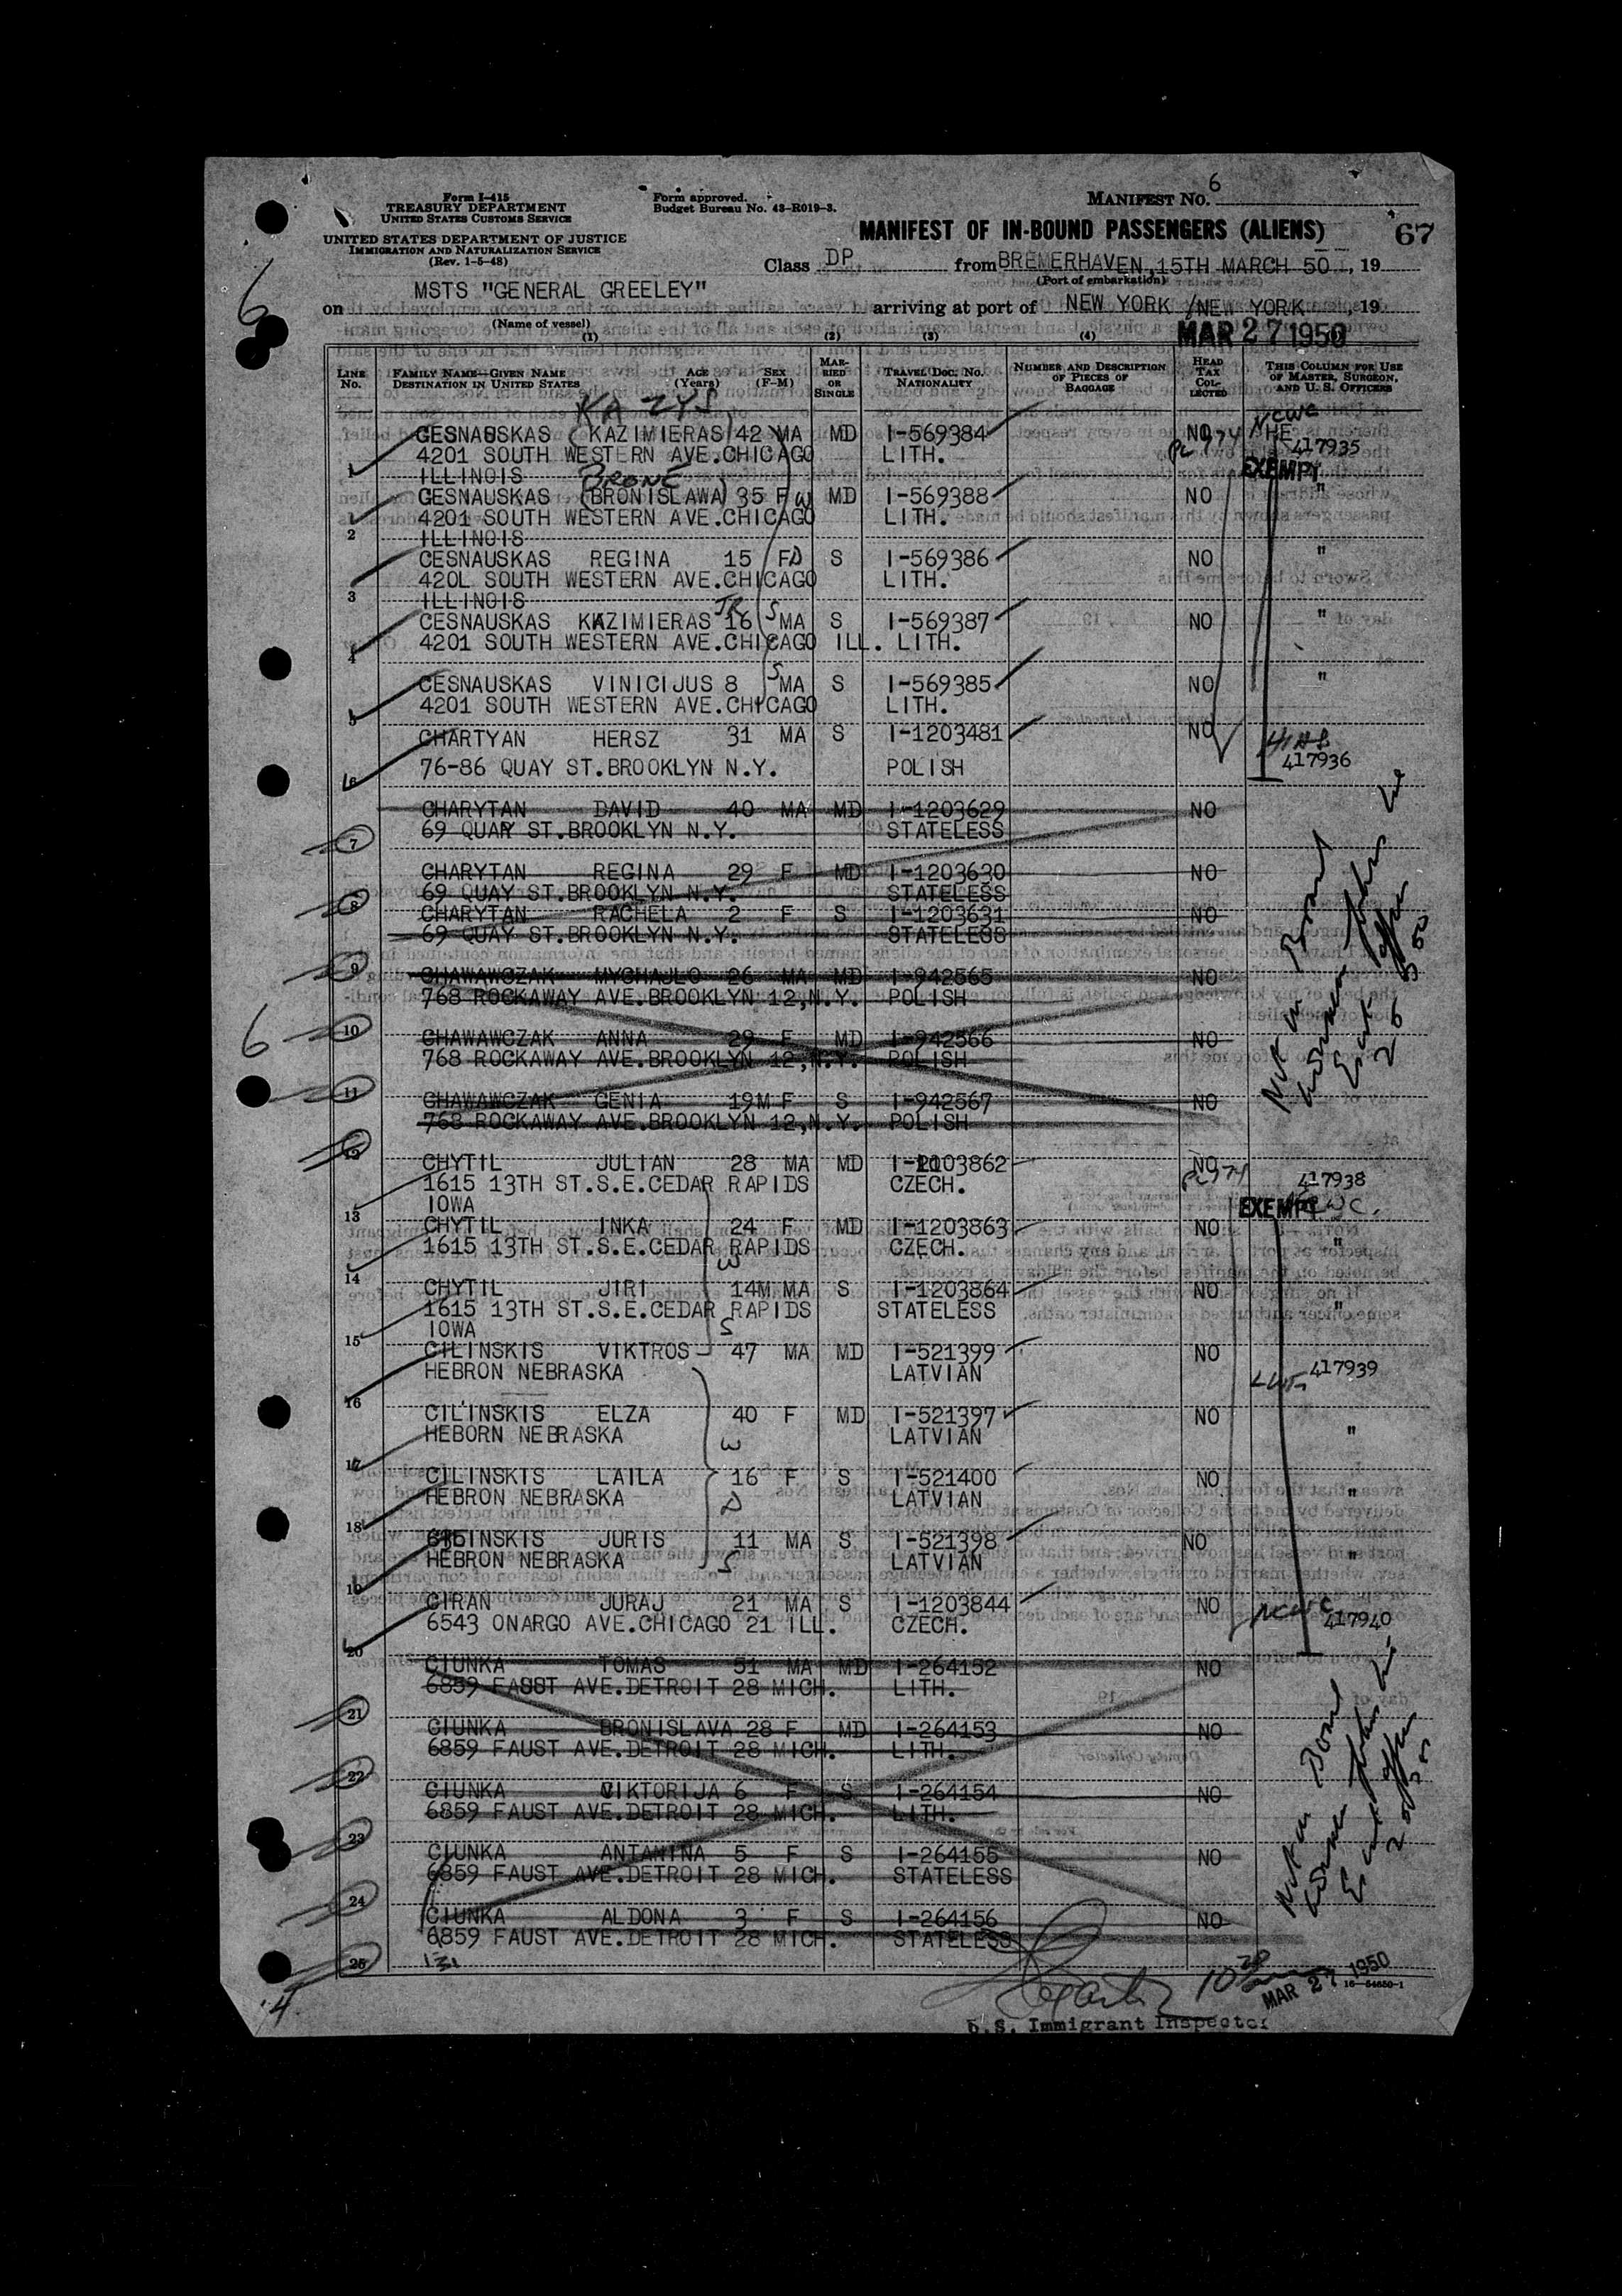 Form I-415
TREASURY DEPARTMENT
UNITED STATES CUSTOMS SERVICE
UNITED STATES DEPARTMENT OF JUSTICE
IMMIGRATION AND NATURALIZATION SERVICE
(Rev. 1-5-48)
Form approved.
Budget Bureau No. 43-R019-3.
MANIFEST NO. 6
MANIFEST OF IN-BOUND PASSENGERS (ALIENS)
67
Class DP from BREMERHAVEN, 15TH MARCH 50, 19
(Port of embarkation)
on MSTS "GENERAL GREELEY" arriving at port of NEW YORK / NEW YORK, 19
(Name of vessel)
MAR 27 1950
(1) (2) (3) (4)
LINE No. FAMILY NAME—GIVEN NAME DESTINATION IN UNITED STATES AGE (Years) SEX (F-M) MARRIED OR SINGLE TRAVEL DOC. NO. NATIONALITY NUMBER AND DESCRIPTION OF PIECES OF BAGGAGE HEAD TAX COLLECTED THIS COLUMN FOR USE OF MASTER, SURGEON, AND U. S. OFFICERS
KAZYS
NCWC
CESNAUSKAS (KAZIMIERAS) 42 MA MD I-569384 NO HE 417935
4201 SOUTH WESTERN AVE.CHICAGO LITH.
1 ILLINOIS EXEMPT
BRONE
CESNAUSKAS (BRONISLAWA) 35 F W MD I-569388 NO "
4201 SOUTH WESTERN AVE.CHICAGO LITH.
2 ILLINOIS
CESNAUSKAS REGINA 15 F D S I-569386 NO "
420L SOUTH WESTERN AVE.CHICAGO LITH.
3 ILLINOIS
CESNAUSKAS KAZIMIERAS JR 16 S MA S I-569387 NO "
4201 SOUTH WESTERN AVE.CHICAGO ILL. LITH.
4
CESNAUSKAS VINICIJUS 8 S MA S I-569385 NO "
4201 SOUTH WESTERN AVE.CHICAGO LITH.
5
CHARTYAN HERSZ 31 MA S I-1203481 NO HIAS
76-86 QUAY ST.BROOKLYN N.Y. POLISH 417936
6
CHARYTAN DAVID 40 MA MD I-1203629 NO
69 QUAR ST.BROOKLYN N.Y. STATELESS
7
CHARYTAN REGINA 29 F MD I-1203630 NO
69 QUAY ST.BROOKLYN N.Y. STATELESS
8
CHARYTAN RACHELA 2 F S I-1203631 NO
69 QUAY ST.BROOKLYN N.Y. STATELESS
9
CHAWAWCZAK MYCHAJLO 26 MA MD I-942565 NO
768 ROCKAWAY AVE.BROOKLYN 12,N.Y. POLISH
10
CHAWAWCZAK ANNA 29 F MD I-942566 NO
768 ROCKAWAY AVE.BROOKLYN 12,N.Y. POLISH
11
CHAWAWCZAK GENIA 19M F S I-942567 NO
768 ROCKAWAY AVE.BROOKLYN 12,N.Y. POLISH
Not on Board
12
CHYTIL JULIAN 28 MA MD I-1203862 NO
1615 13TH ST.S.E.CEDAR RAPIDS CZECH. 417938
13 IOWA EXEMPT NCWC.
CHYTIL INKA 24 F MD I-1203863 NO "
1615 13TH ST.S.E.CEDAR RAPIDS CZECH.
14
CHYTIL JIRI 14M MA S I-1203864 NO "
1615 13TH ST.S.E.CEDAR RAPIDS STATELESS
15 IOWA
CILINSKIS VIKTROS 47 MA MD I-521399 NO
HEBRON NEBRASKA LATVIAN 417939
16
CILINSKIS ELZA 40 F MD I-521397 NO "
HEBORN NEBRASKA LATVIAN
17
CILINSKIS LAILA 16 F S I-521400 NO "
HEBRON NEBRASKA LATVIAN
18
CILINSKIS JURIS 11 MA S I-521398 NO "
HEBRON NEBRASKA LATVIAN
19
CIRAN JURAJ 21 MA S I-1203844 NO NCWC 417940
6543 ONARGO AVE.CHICAGO 21 ILL. CZECH.
20
CIUNKA TOMAS 51 MA MD I-264152 NO
6859 FAUST AVE.DETROIT 28 MICH. LITH.
21
CIUNKA BRONISLAVA 28 F MD I-264153 NO
6859 FAUST AVE.DETROIT 28 MICH. LITH.
22
CIUNKA VIKTORIJA 6 F S I-264154 NO
6859 FAUST AVE.DETROIT 28 MICH. LITH.
23
CIUNKA ANTANINA 5 F S I-264155 NO
6859 FAUST AVE.DETROIT 28 MICH. STATELESS
24
CIUNKA ALDONA 3 F S I-264156 NO
6859 FAUST AVE.DETROIT 28 MICH. STATELESS
Not on Board
25
MAR 27 1950
16-54650-1
U.S. Immigrant Inspector